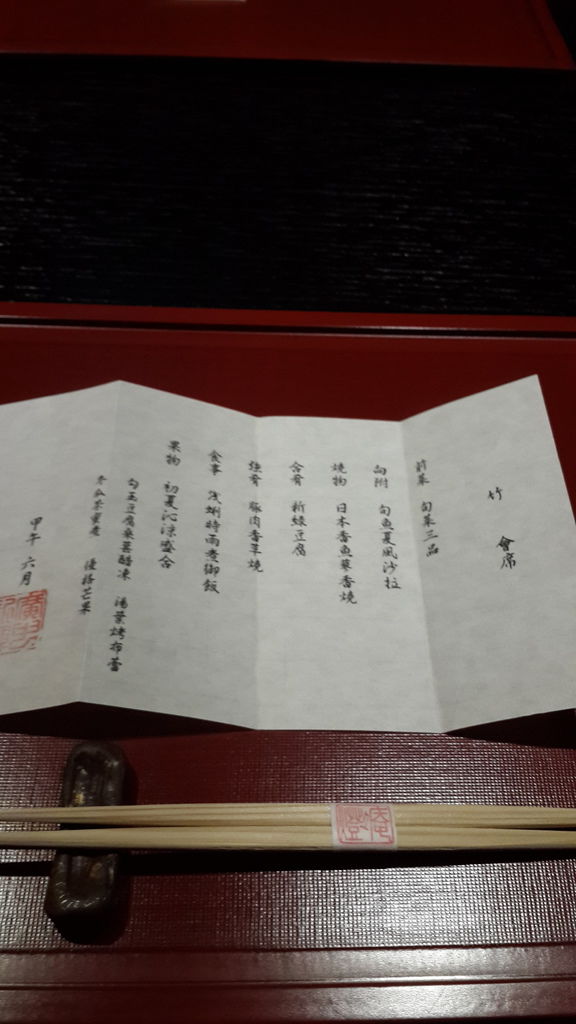 竹 會席
前菜 旬菜三品
向附 旬魚夏風沙拉
燒物 日本香魚蓼香燒
合肴 新綠豆腐
強肴 豚肉香草燒
食事 浅蜊時雨煮御飯
果物 初夏沁涼盛合
勾玉豆腐桑葚醋凍 湯葉烤布蕾
冬瓜茶蜜煮 優格芒果
甲午 六月